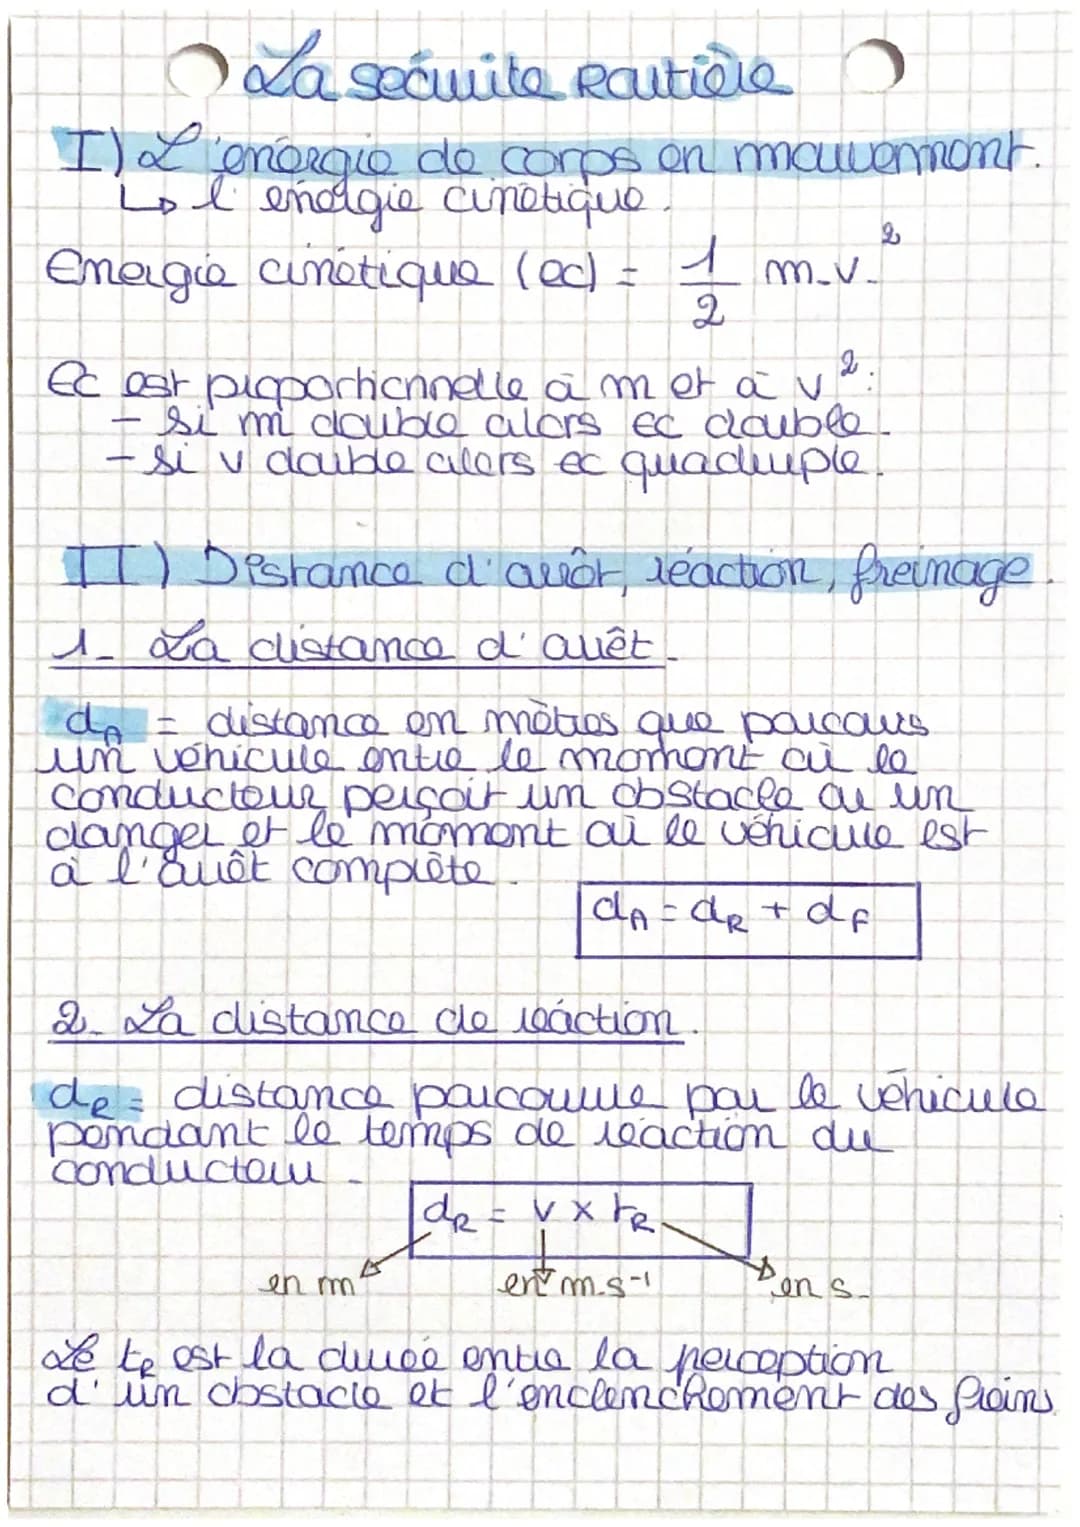 La sécurité Routière
I) L'énergie de corps en mouvement.
↳ l'énergie cinétique.
Energie cinétique (ec) = 1/2 m.v.²
Ec est proportionnelle à m et à v²:
- si m double alors Ec double.
- si v double alors ec quadruple.
II) Distance d'arrêt, réaction, freinage.
1- La distance d'arrêt.
dA = distance en mètres que parcours
un véhicule entre le moment où le
conducteur perçoit un obstacle ou un
danger et le moment où le véhicule est
à l'arrêt complète.
dA = dR + dF
2- La distance de réaction.
dR = distance parcourue par le véhicule
pendant le temps de réaction du
conducteur.
dR = v × tR
en m en m.s⁻¹ en s.
Le tR est la durée entre la perception
d'un obstacle et l'enclenchement des freins